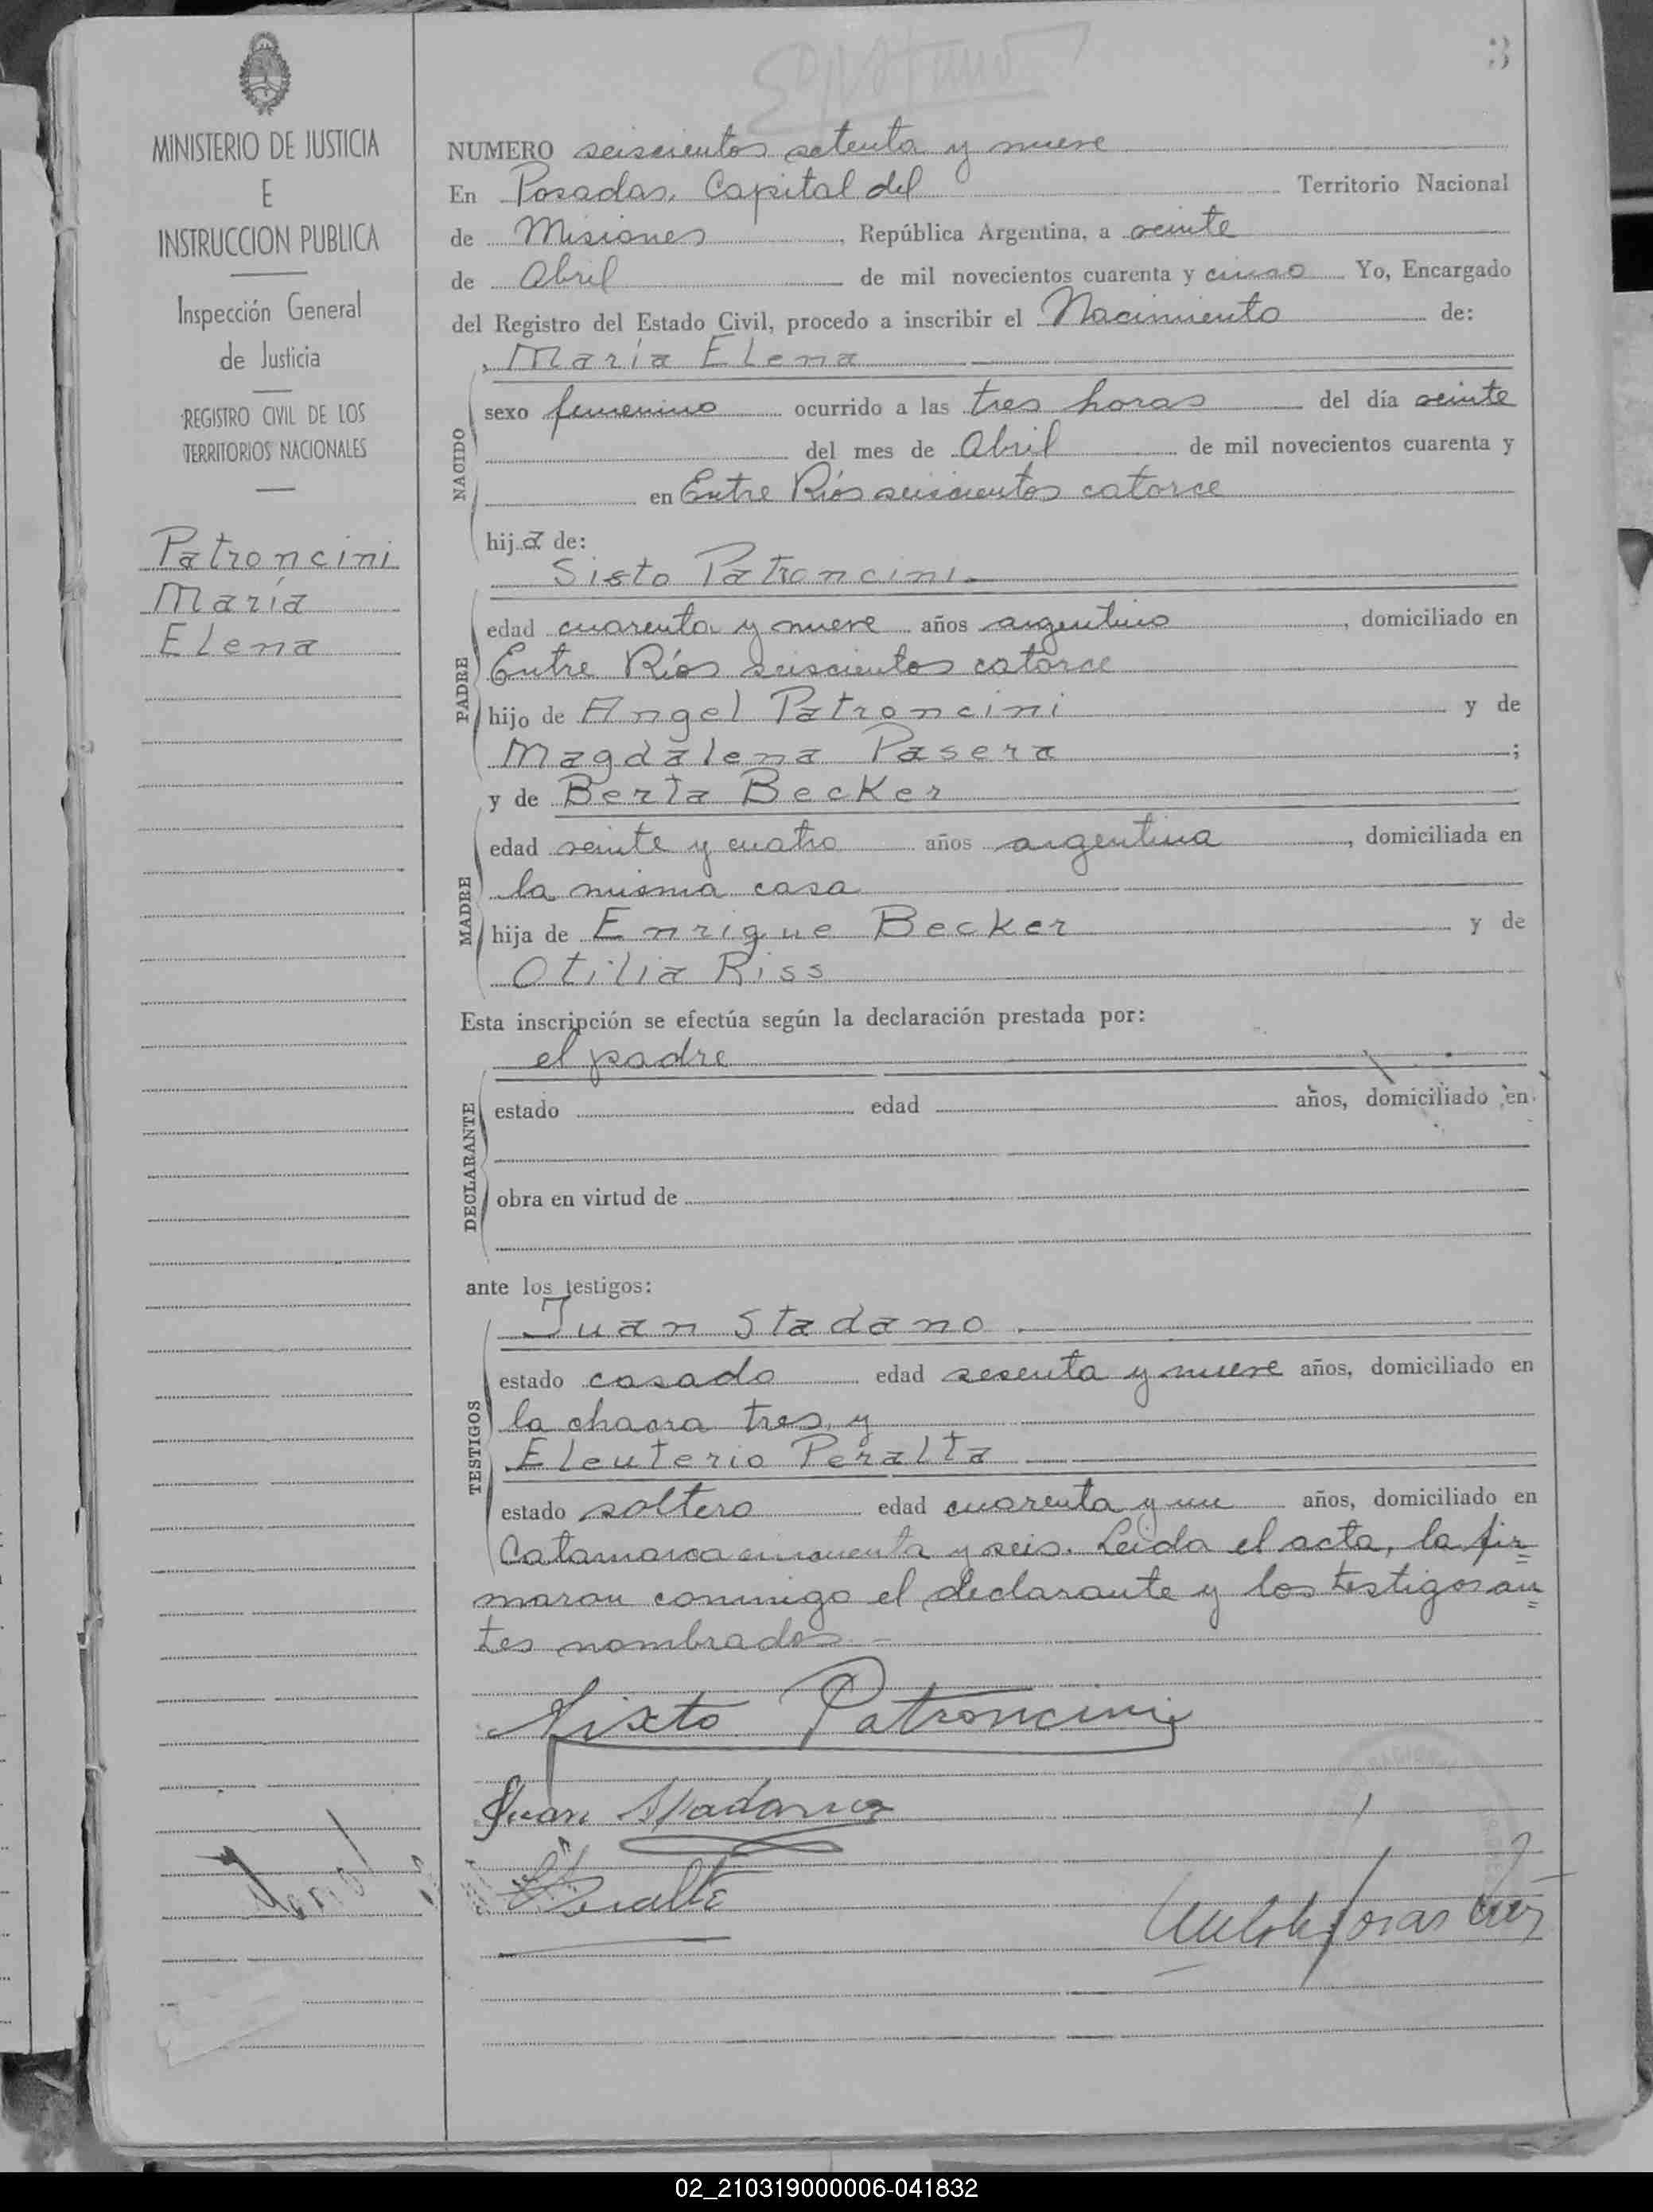 3
MINISTERIO DE JUSTICIA
E
INSTRUCCION PUBLICA
Inspección General
de Justicia
REGISTRO CIVIL DE LOS
TERRITORIOS NACIONALES
Patroncini
María
Elena
NUMERO seiscientos setenta y nueve
En Posadas, Capital del Territorio Nacional
de Misiones, República Argentina, a veinte
de Abril de mil novecientos cuarenta y cinco Yo, Encargado
del Registro del Estado Civil, procedo a inscribir el Nacimiento de:
María Elena
NACIDO
sexo femenino ocurrido a las tres horas del día veinte
del mes de Abril de mil novecientos cuarenta y
en Entre Ríos seiscientos catorce
hija de:
Sisto Patroncini
PADRE
edad cuarenta y nueve años argentino, domiciliado en
Entre Ríos seiscientos catorce
hijo de Angel Patroncini y de
Magdalena Pasera;
y de Berta Becker
MADRE
edad veinte y cuatro años argentina, domiciliada en
la misma casa
hija de Enrique Becker y de
Otilia Riss
Esta inscripción se efectúa según la declaración prestada por:
el padre
DECLARANTE
estado edad años, domiciliado en
obra en virtud de
ante los testigos:
Juan Stadano
TESTIGOS
estado casado edad sesenta y nueve años, domiciliado en
la chacra tres y
Eleuterio Peralta
estado soltero edad cuarenta y un años, domiciliado en
Catamarca cincuenta y seis. Leída el acta, la fir=
maron conmigo el declarante y los testigos an=
tes nombrados.-
Sixto Patroncini
Juan Stadano
Peralta
02_210319000006-041832